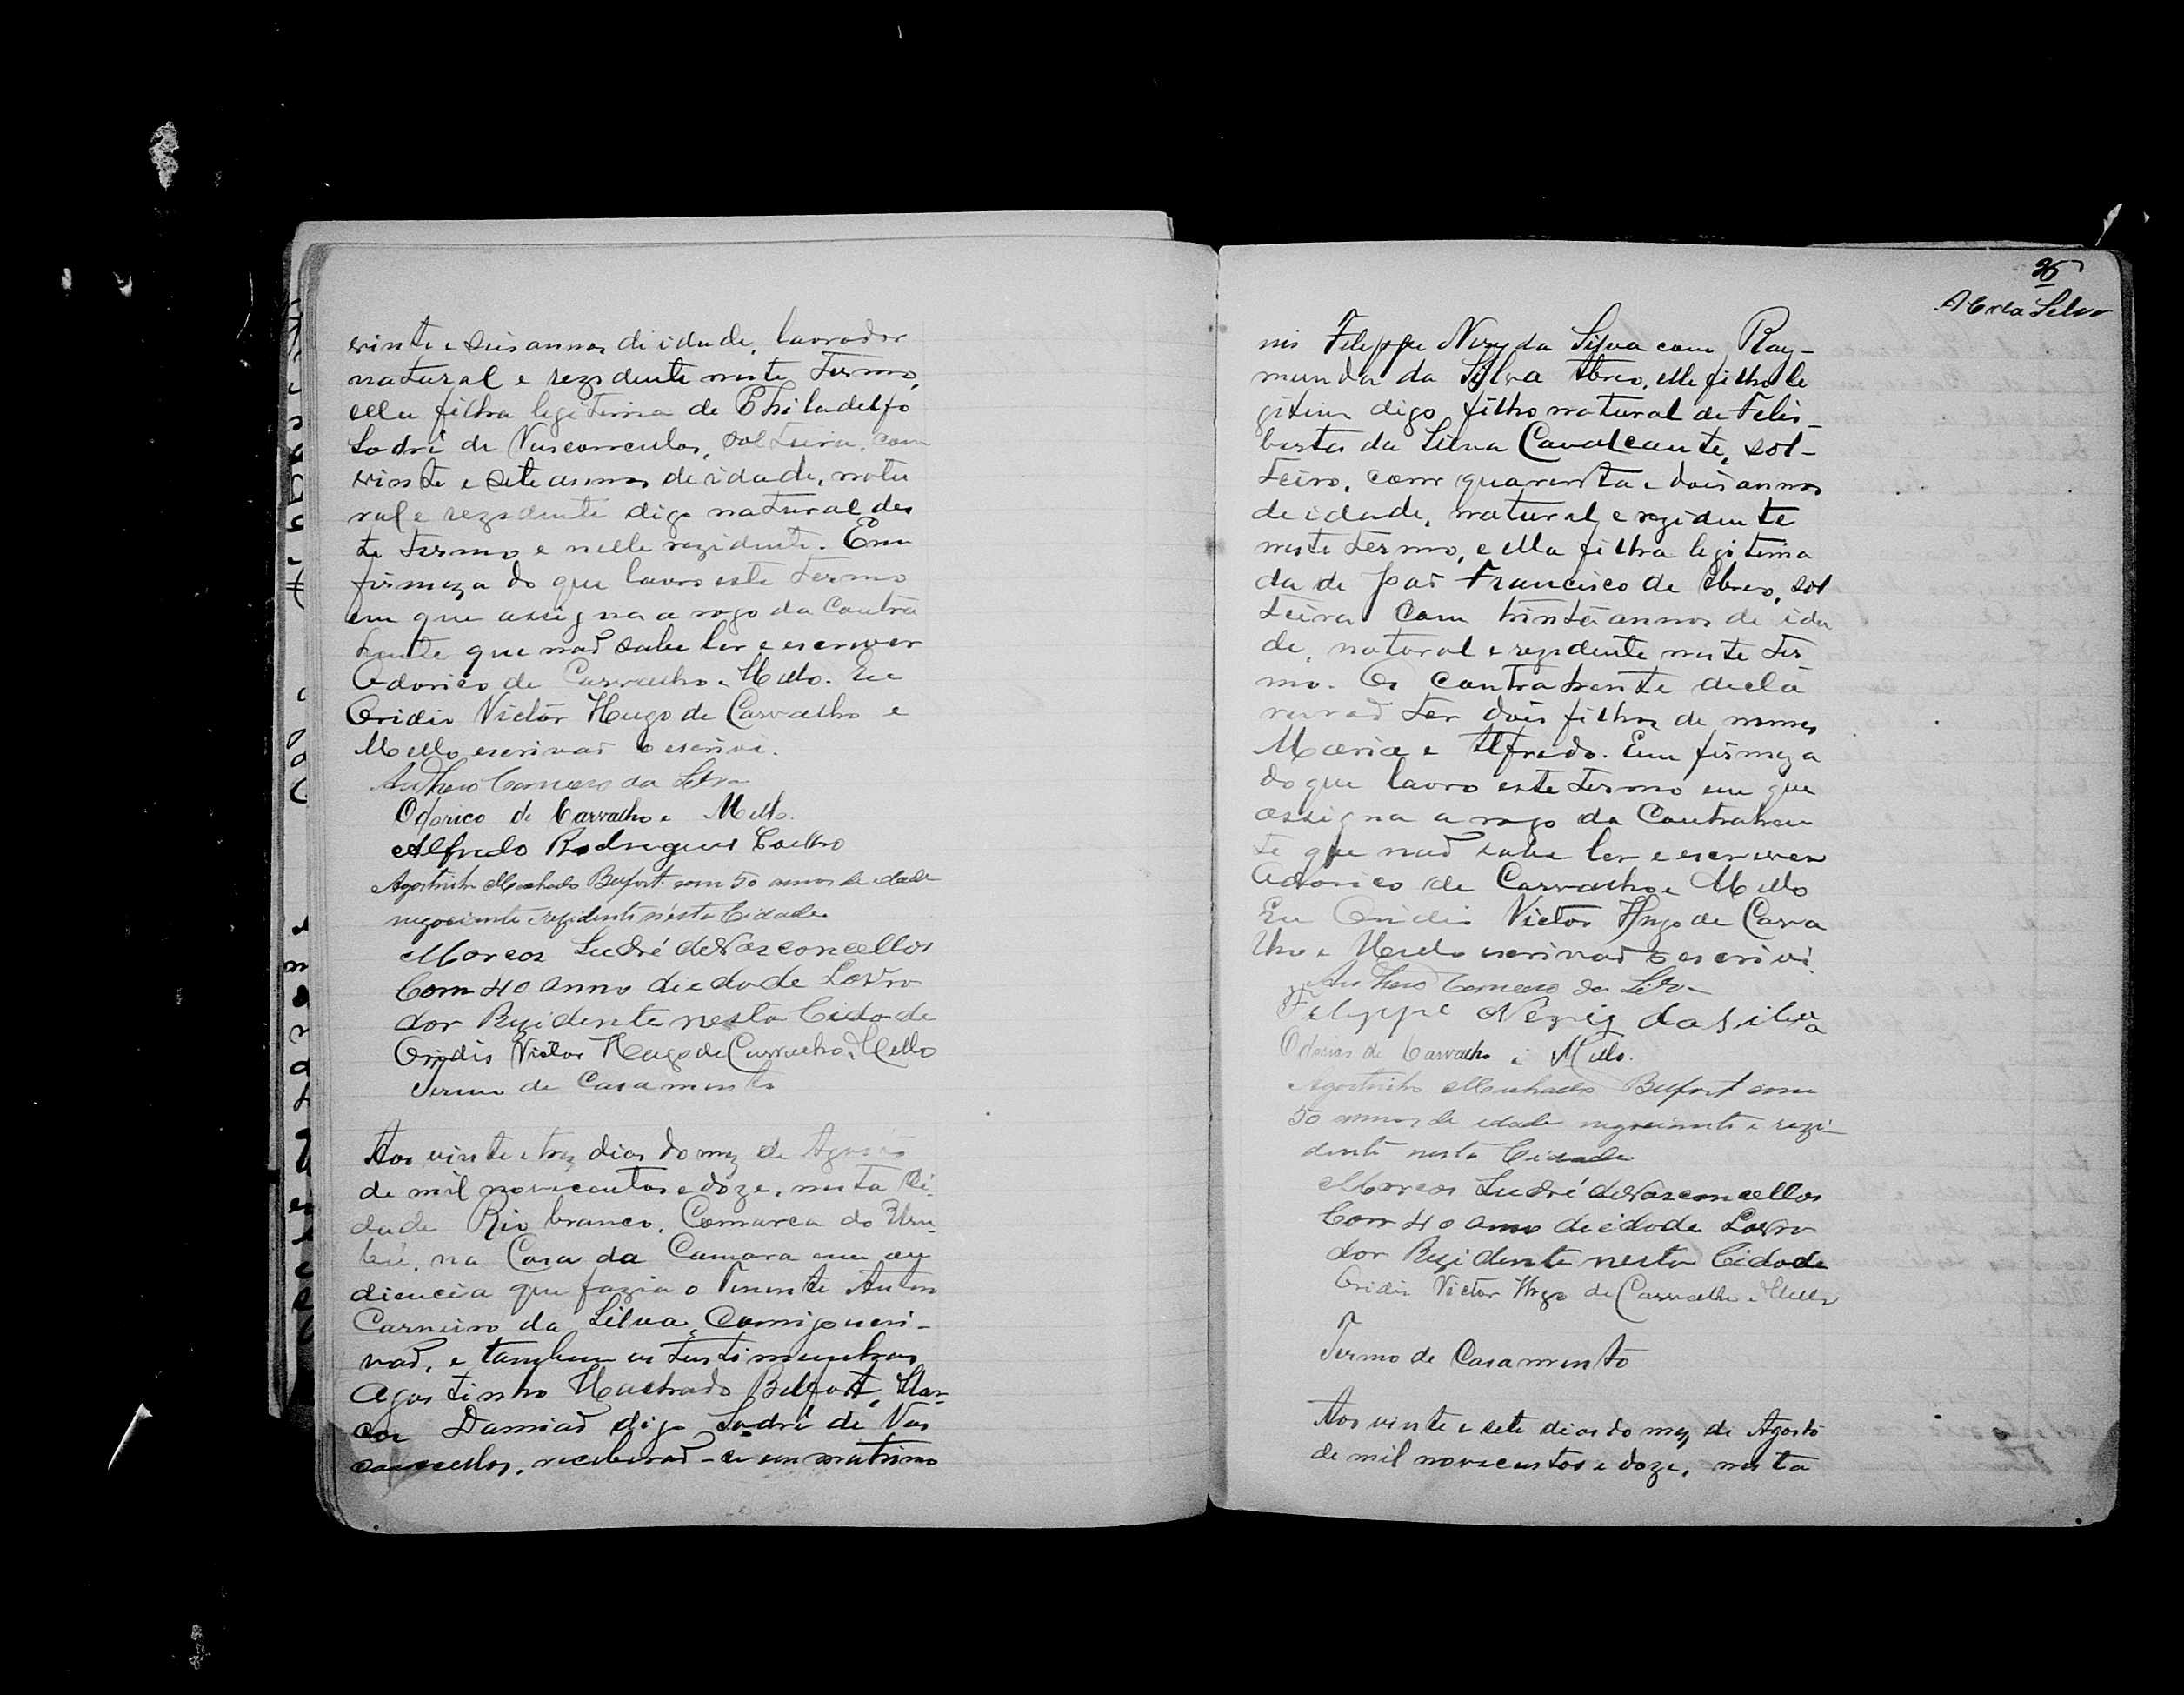 vinte e seis annos de idade, lavrador
natural e rezidente neste termo,
ella filha legitima de Philadelfo
Sodré de Vasconcellos, solteira, com
vinte e sete annos de idade, natu
ral e rezidente digo natural des
te termo e nelle rezidente. Em
firmeza do que lavro este termo
em que assigna a rogo da contra
hente que naõ sabe ler e escrever
Odorico de Carvalho e Mello. Eu
Oridis Victor Hugo de Carvalho e
Mello escrivaõ o escrivi.
Anthero Carneiro da Silva
Odorico de Carvalho e Mello.
Alfredo Rodrigues Coelho
Agostinho Machado Belfort com 50 annos de idade
negociante rezidente nésta Cidade.
Marcos Sudré de Vasconcellos
Com 40 anno de edade Lavra
dor Rezidente nesta Cidade
Oridis Victor Hugo de Carvalho e Mello
Termo de Casamento
Aos vinte e trez dias do mez de Agosto
de mil novecentos e doze, nesta Ci-
dade Rio branco, Comarca do Uru-
bú, na Casa da Camara em au
diencia que fazia o Tenente Antero
Carneiro da Silva, Comigo escri-
vaõ, e tambem as testimunhas
Agostinho Machado Belfort, Mar-
cos Damiaõ digo Sodré de Vas
concellos, receberaõ-se em matrimo
26
A C da Silva
nio Felippe Nery da Silva com Ray-
munda da Silva Abreo, elle filho le
gitim digo filho natural de Felis-
berta da Silva Cavalcante, sol-
teiro, com quarenta e dois annos
de idade, natural e rezidente
neste termo, e ella filha legitima
da de Joaõ Francisco de Abreo, sol
teira com trinta annos de ida
de, natural e rezidente neste ter-
mo. Os contrahente decla
raraõ ter dois filhos de nomes
Maria e Alfredo. Em firmeza
do que lavro este termo em que
assigna a rogo da Contrahen
te que naõ sabe ler e escrever
Odorico de Carvalho e Mello
Eu Oridis Victor Hugo de Carva
lho e Mello escrivaõ o escrivi.
Anthero Carneiro da Silva
Felippe Neriz da Silva
Odorico de Carvalho e Mello.
Agostinho Machado Belfort com
50 annos de edade negociante e rezi-
dente nesta Cidade
Marcos Sudré de Vasconcellos
Com 40 anno de edade Lavra
dor Rezidente nesta Cidade
Oridis Victor Hugo de Carvalho e Mello
Termo de Casamento
Aos vinte e sete dias do mez de Agosto
de mil novecentos e doze, nesta